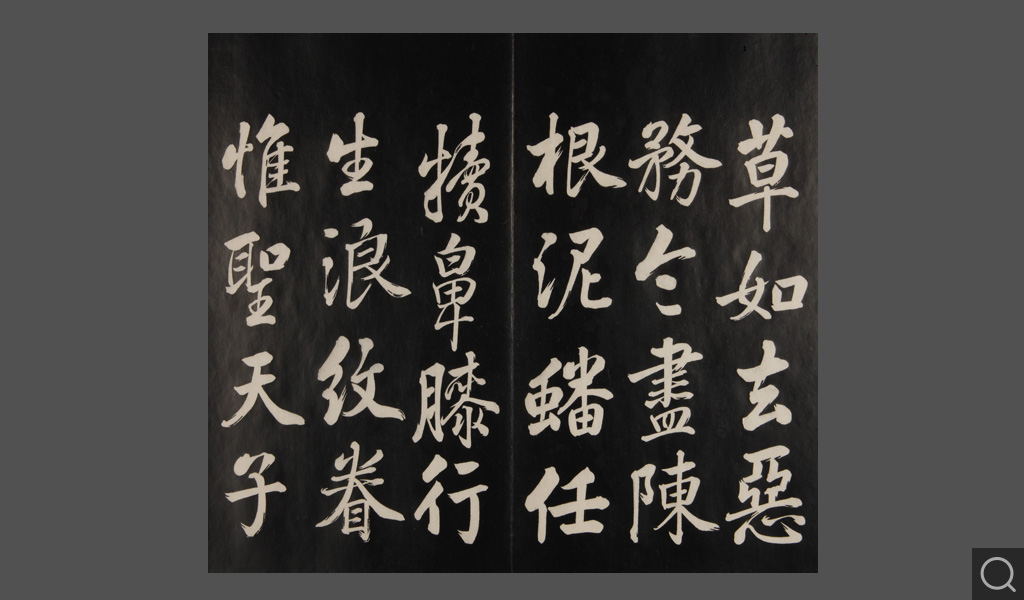 草如去惡
務令盡陳
根泥蟠任
犢鼻膝行
生浪紋眷
惟聖天子